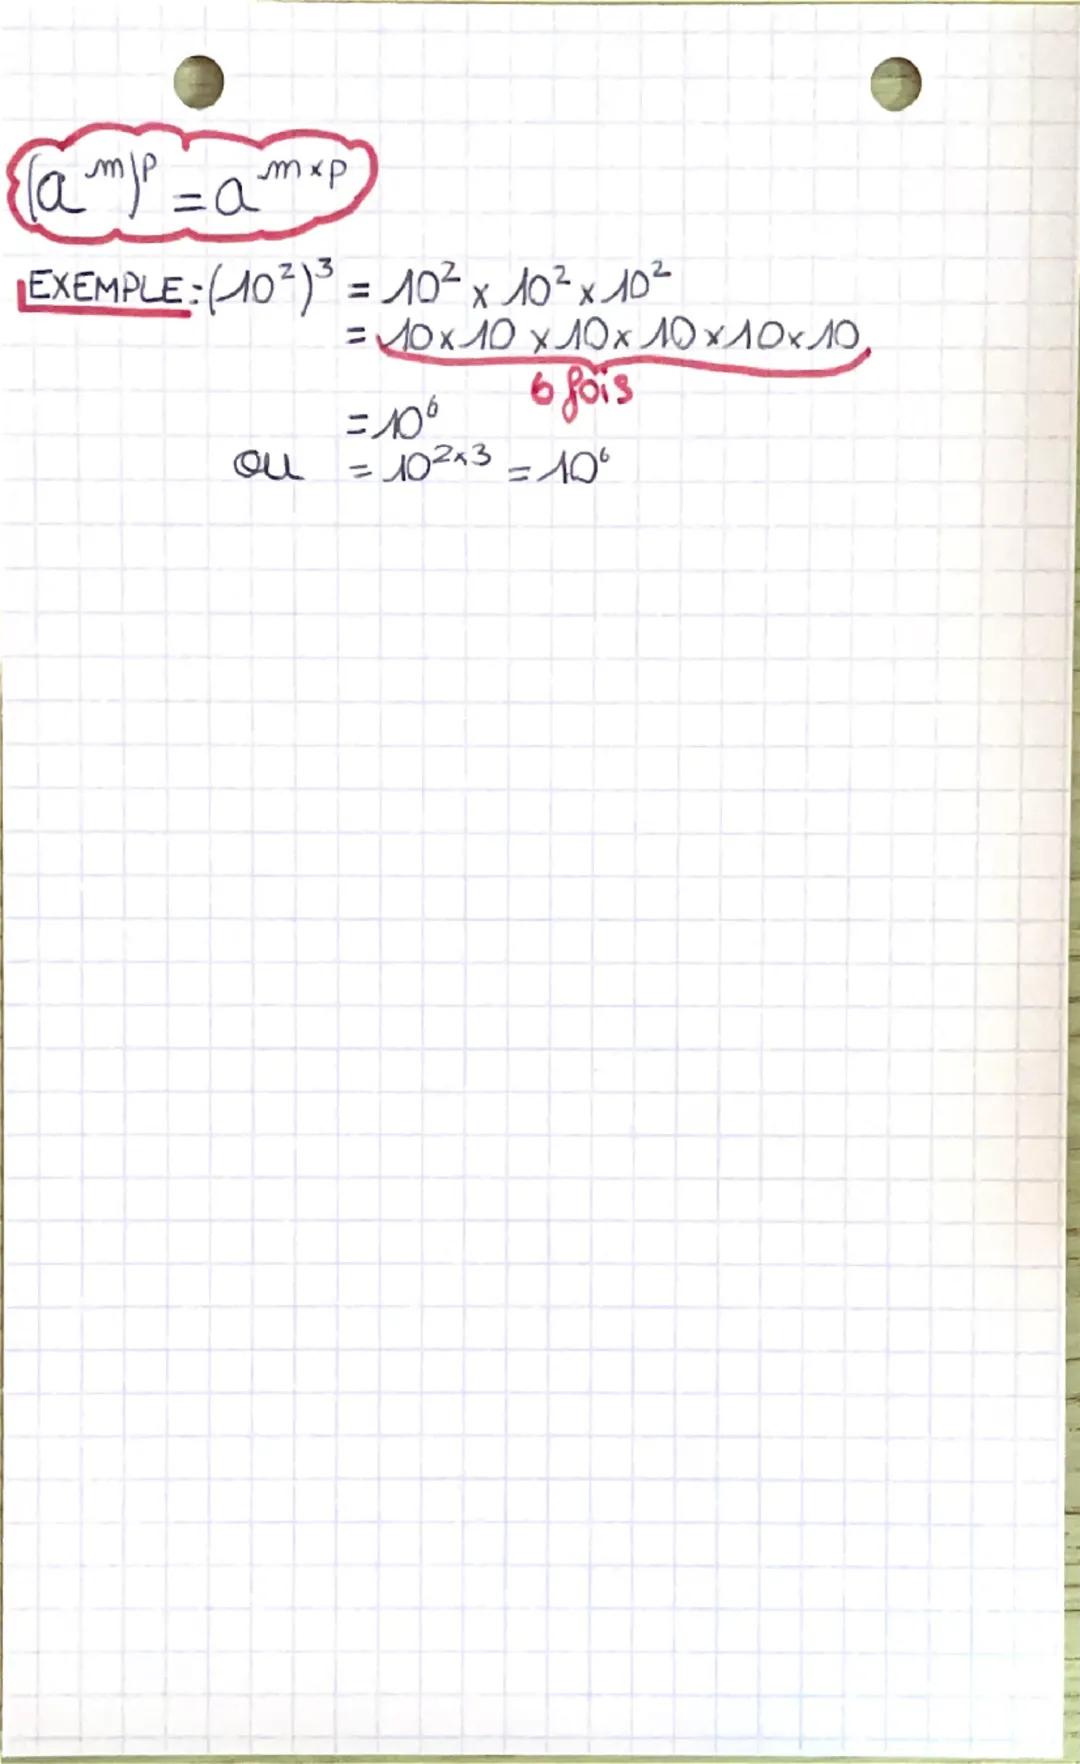 (a^m)^p = a^{m×p}
EXEMPLE: (10²)³ = 10² × 10² × 10²
= 10×10×10×10×10×10
6 fois
= 10⁶
ou = 10^{2×3} = 10⁶